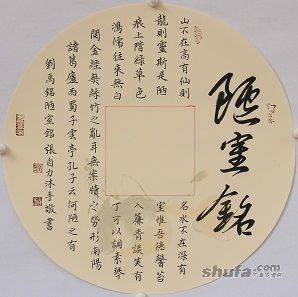 陋室銘
山不在高有仙則
名水不在深有
龍則靈斯是陋
室惟吾德馨苔
痕上階綠草色
入簾青談笑有
鴻儒往來無白
丁可以調素琴
閱金經無絲竹之亂耳無案牘之勞形南陽
諸葛廬西蜀子雲亭孔子云何陋之有
劉禹錫陋室銘 張自力沐手敬書
shufa.com